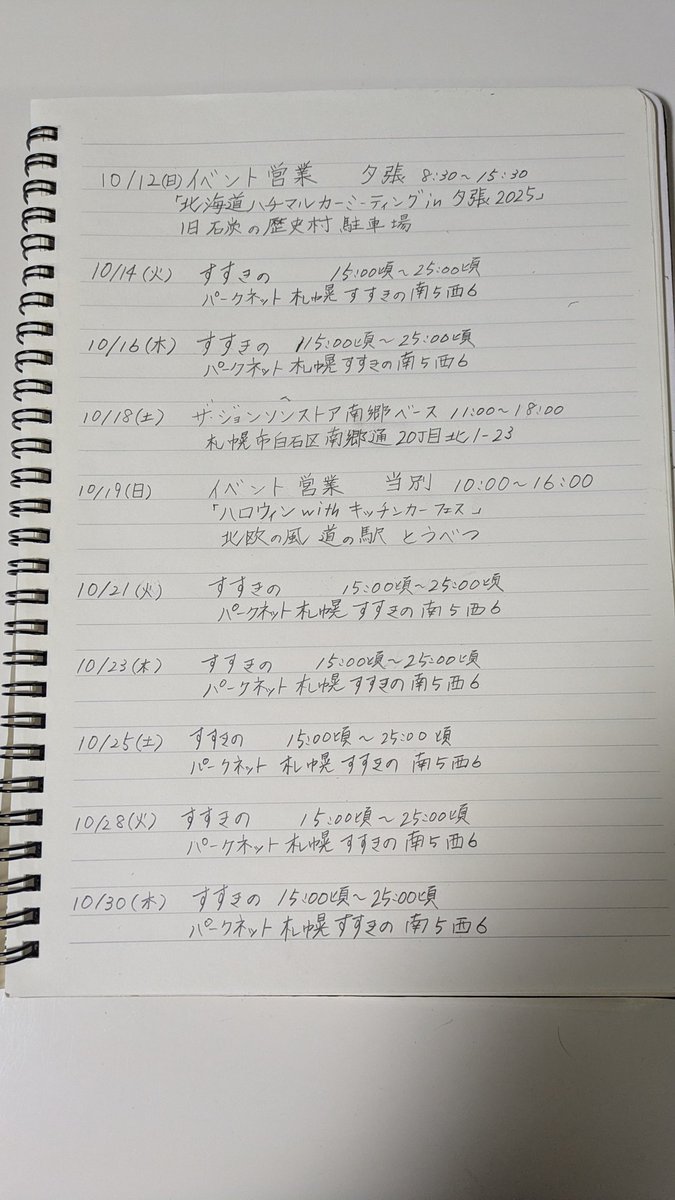 10/12(日)イベント営業 夕張 8:30~15:30
「北海道ハチマルカーミーティングin夕張2025」
旧石炭の歴史村 駐車場
10/14(火) すすきの 15:00頃~25:00頃
パークネット札幌すすきの南5西6
10/16(木) すすきの 15:00頃~25:00頃
パークネット札幌すすきの南5西6
10/18(土) ザ・ジョンソンストア南郷ベース 11:00~18:00
札幌市白石区南郷通20丁目北1-23
10/19(日) イベント営業 当別 10:00~16:00
「ハロウィンwithキッチンカーフェス」
北欧の風 道の駅 とうべつ
10/21(火) すすきの 15:00頃~25:00頃
パークネット札幌すすきの南5西6
10/23(木) すすきの 15:00頃~25:00頃
パークネット札幌すすきの南5西6
10/25(土) すすきの 15:00頃~25:00頃
パークネット 札幌すすきの 南5西6
10/28(火) すすきの 15:00頃~25:00頃
パークネット札幌すすきの南5西6
10/30(木) すすきの 15:00頃~25:00頃
パークネット札幌すすきの南5西6